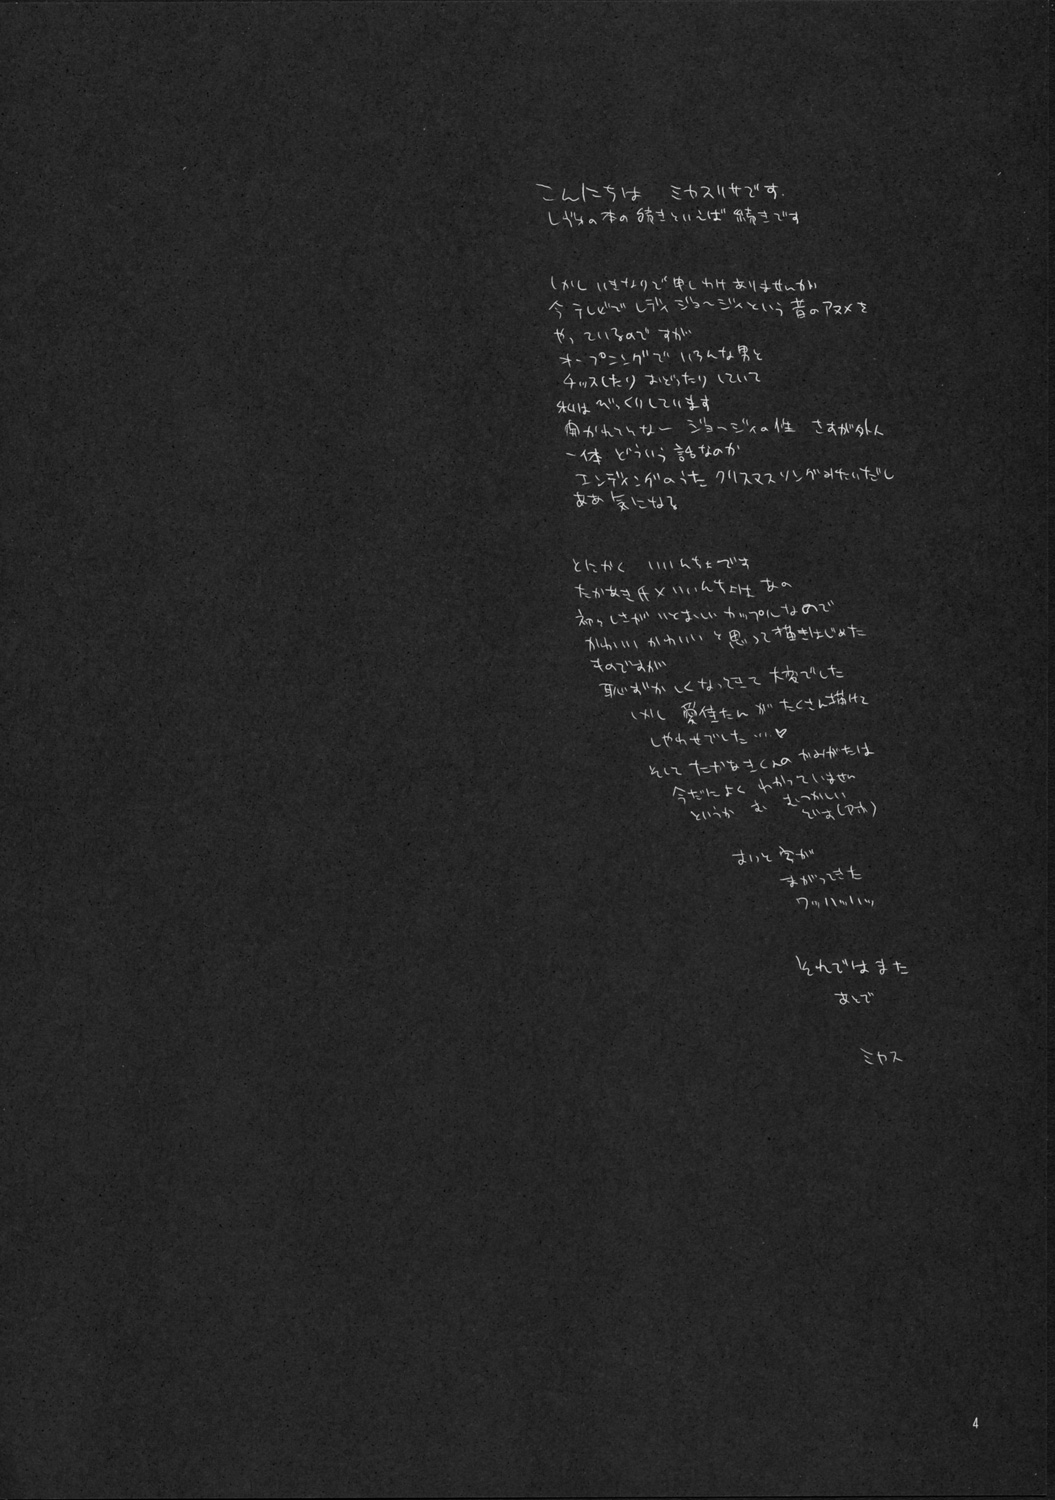 こんにちは ミカスリサです.
の本の続きといえば 続きです
しかし いきなりで申しわけありませんが
今 テレビで レディ ジョージィという 昔のアニメを
やっているのですが
オープニングで いろんな男と
チッスしたり おどったり していて
私は びっくりしています
ジョージィの性 さすが外人
一体 どういう 話なのか
エンディングのうた クリスマスソングみたいだし
ああ 気になる
とにかく いいんちょです
たかあき氏×いいんちょは あの
初々しさがいとおしい カップルなので
かわいい かわいい と思って描きはじめた
ものですが
恥ずかしくなってきて 大変でした
しかし 愛佳たん が たくさん描けて
しやわせでした…♡
そして たかあきくんの かみがたは
今だによく わかっていません
というか む むつかしい
でよ(アホ)
字が
まがってきた
ワッハッハッ
それでは また
あとで
ミカス
4